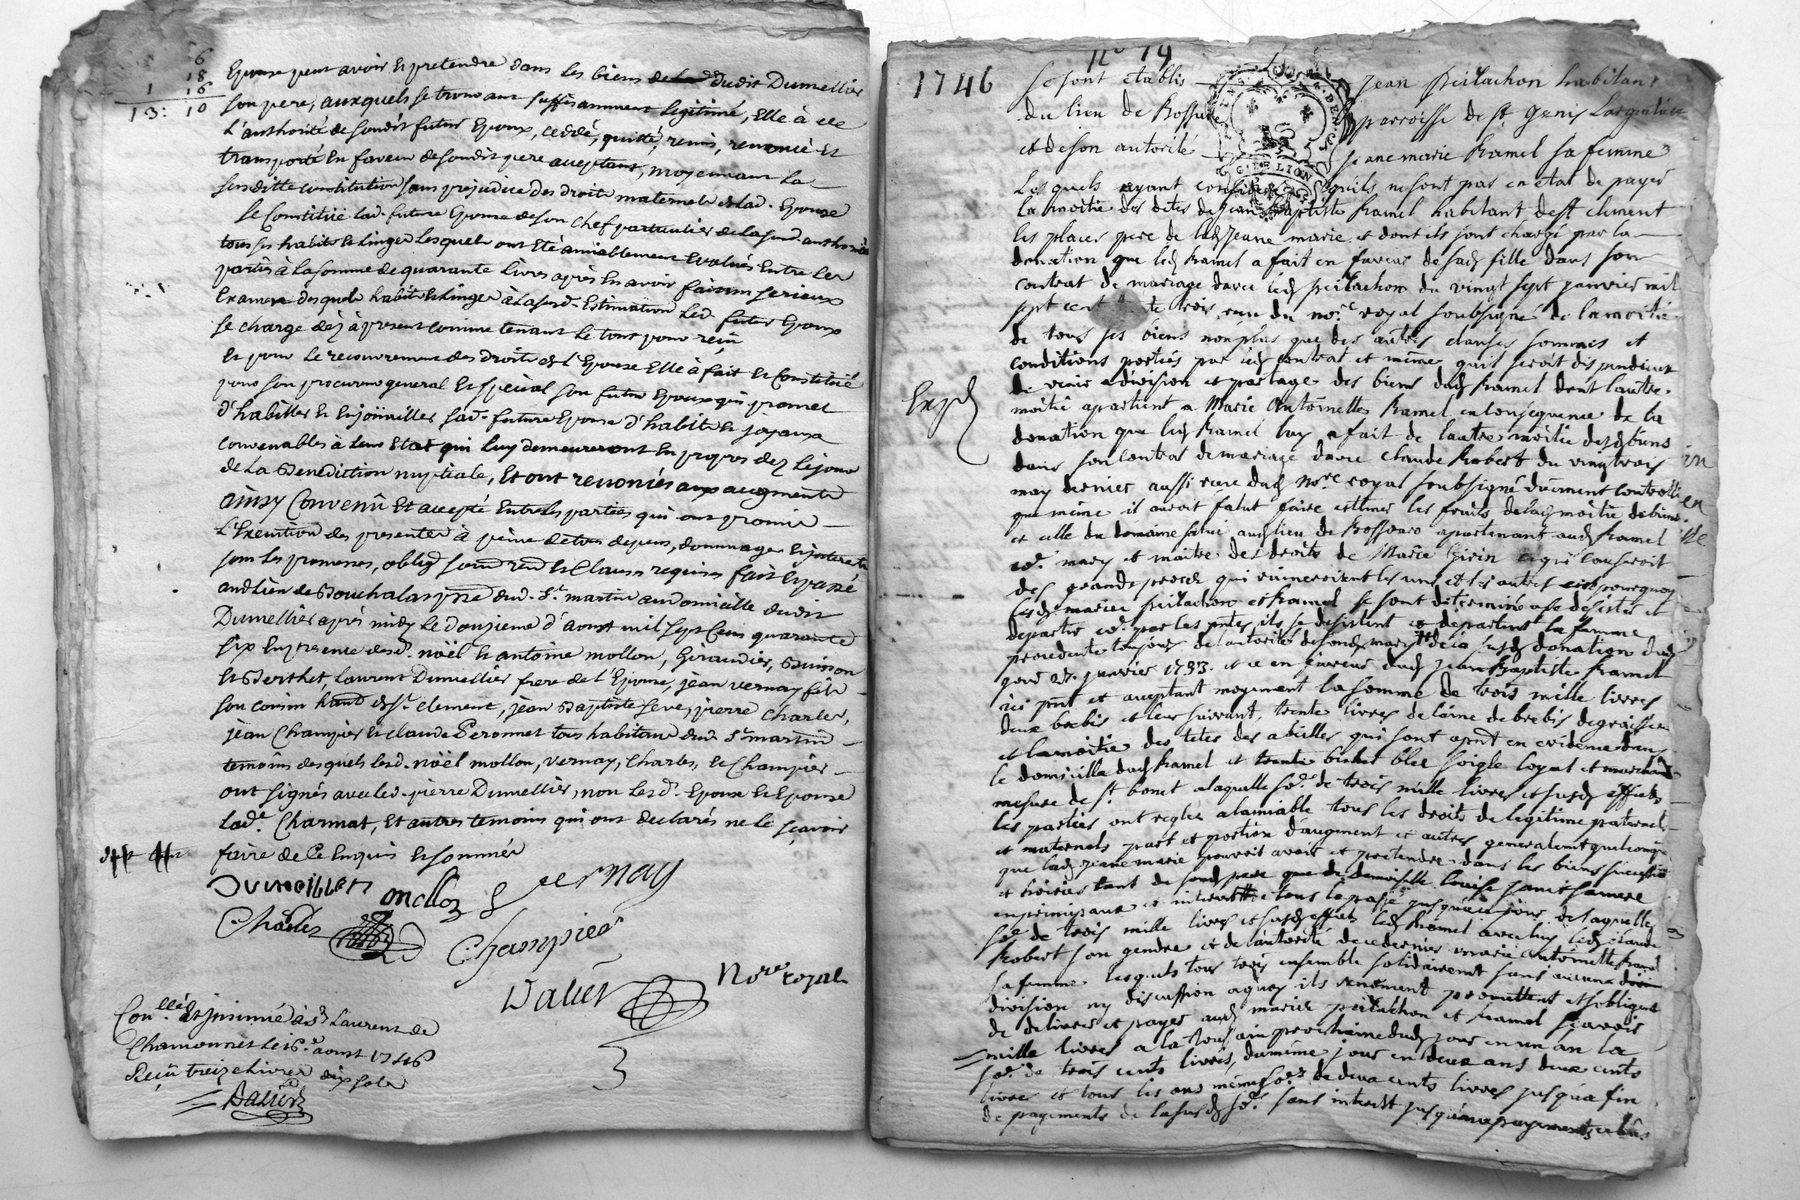 6
18
1 16
13: 10
Epouse peut avoir et pretendre dans les biens dudit Dumellier
son pere, auxquels se trouvant suffisamment legitimé, Elle à de
L'authorité de sondit futur Epoux, ceddé, quitté, remis, renoncé et
transporté En faveur de sondit pere acceptant, moyennant La
susditte constitution sans prejudice des droits maternels de lad. Epouse
Se Constitüe lad. future Epouse de son chef particulier de la susd. authorité
tous ses habits et Linges Lesquels ont été amiablement Evalués Entre Les
parties à La somme de quarante Livres après En avoir fait un serieux
Examen desquels habits et Linges à La susd. Estimation Led. futur Epoux
se charge dès à present comme tenant le tout pour reçu
Et pour Le recouvrement des Droits de L'Epouse Elle à fait et Constitüé
pour son procureur general et special son futur Epoux qui promet
d'habiller et Enjoüailler sad. future Epouse d'habits et joyaux
convenables à leur Etat qui Luy demeureront En propres dez Le jour
de La Benediction nuptiale, Et ont renoncés aux augments
ainsy Convenû Et accepté Entre les parties qui ont promis
L'Execution des presentes à peine de tous depens, dommages Interets
sous Les promesses, oblig. soum. ren. et Clauses requises fait Et passé
aud. Lieu de Bouchalas psse dud. St. martin au domicille dudit
Dumellier après midy Le Douzieme d'Aoust mil sept Cens quarante
six En presence de sr. noël et antoine mollon, Giraudier, Buisson
et Berthet, Laurent Dumellier frere de L'Epouse, jean vernay fils
son cousin habt. de St. Clement, jean Baptiste Seve, pierre Charles,
jean Champier et claude Peronnet tous habitans dud. St. martin
temoins desquels lesd. noël mollon, vernay, Charles, et Champier
ont signés avec led. pierre Dumellier, non Lesd. Epoux et Epouse
lad. Charmat, Et autres temoins qui ont declarés ne le sçavoir
faire de Ce Enquis et sommés
Dumeillier mollon vernay
Charles Champier
Dalier Nore royal
Con.llé Et insinué à St Laurent de
Chamousset le 16.e aoust 1746
Reçu treize Livres dix sols
Dalier
1746
n° 74
Se sont etablis Jean peilachon habitant
du lieu de Rossure parroisse de st Genis Largentiere
et de son autorité Jeane marie Ramel sa femme
Lesquels ayant consideré qu'ils ne sont pas en etat de payer
La moitié des dettes de Jean Baptiste Ramel habitant de st Climent
les places pere de lad. Jeane marie, et dont ils sont chargé par la
donation que led. Ramel a fait en faveur de sad. fille dans son
contrat de mariage avec led. peilachon du vingt sept janvier mil
sept cent trois, recu du nore. royal soubsigné de la moitié
de tous ses biens non plus que des autres clauses sommes et
conditions portées par led. contrat et meme qu'il seroit dispendieux
de venir a division et partage des biens dud. Ramel dont l'autre
Exped
moitié apartient a Marie Antoinette Ramel en consequence de la
donation que led. Ramel luy a fait de l'autre moitié desd. biens
dans son contrat de mariage avec Claude Robert du vingt trois
may dernier aussi recu dud. Nore. royal soubsigné duement controllé
que meme il auroit falut faire estimer les fruits de lad. moitié de biens
et celle du domaine situé aud. lieu de Rossure apartenant aud. Ramel
co. mary et maitre des droits de Marie Girin ce qui causeroit
des grands procez qui ruineroient les uns et les autres c'est pourquoy
lesd. mariez peilachon et Ramel se sont determiné a se desister et
departir co. par les pntes. ils se desistent et departent la femme
procedente toujours de l'autorité de sond. mary de la susd. donation dud.
jour 27. janvier 1733. et ce en faveur dud. Jean Baptiste Ramel
icy pnt. et acceptant moyenant la somme de trois mille livres
deux brebis et leur suivant, trente livres de laine de brebis degraissée
et la moitié des têtes des abeilles qui sont apnt. en evidence dans
le domicille dud. Ramel et trente bichet bled soigle loyal et marchand
mesure de st. bonet a laquelle so.e de trois mille livres et susd. effets
les parties ont reglé a lamiable tous les droits de legitime paternels
et maternels part et portion d'augment et autres generalement quelconque
que lad. Jeane marie pourroit avoir et pretendre dans les biens succession
et hoiries tant de sond. pere que de demoiselle Louise sa mere
en principaux et interets et tous le passé jusqu'a ce jour, de laquelle
so.e de trois mille livres et susd. effets led. Ramel avec luy led. Claude
Robert son gendre et de l'autorité de ce dernier marie antoinette Ramel
sa femme lesquels tous trois ensemble solidairement sans aucune
division ny discussion a quoy ils renoncent promettent et s'obligent
de delivrer et payer aud. mariez peilachon et Ramel sçavoir
mille livres a la toussaint prochaine dud. jour en un an la
so.e de trois cents livres, du meme jour en deux ans deux cents
livres et tous les ans meme so.e de deux cents livres jusqu'a fin
de payements de la susd. so.e sans interest jusqu'aux payements